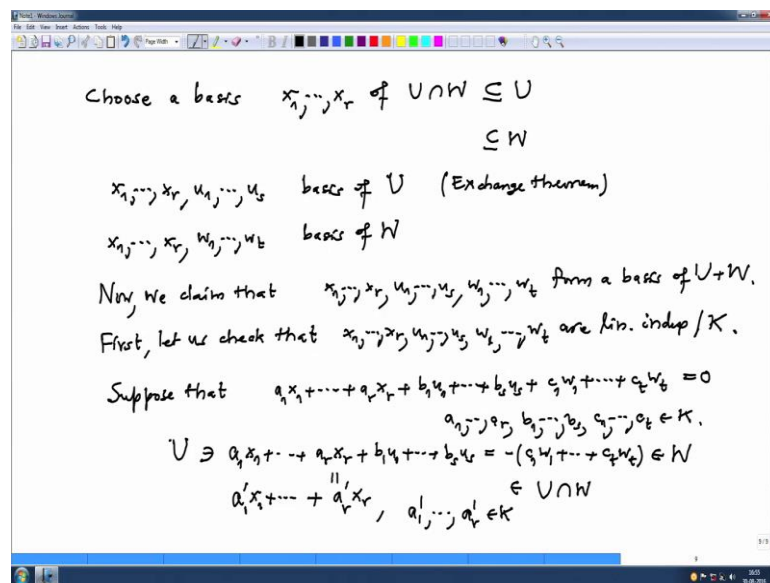 Note1 - Windows Journal
File Edit View Insert Actions Tools Help
Page Width
Choose a basis x₁,···,xᵣ of U∩W ⊆ U
⊆ W
x₁,···,xᵣ, u₁,···,uₛ basis of U (Exchange theorem)
x₁,···,xᵣ, w₁,···,wₜ basis of W
Now, we claim that x₁,···,xᵣ, u₁,···,uₛ, w₁,···,wₜ form a basis of U+W.
First, let us check that x₁,···,xᵣ, u₁,···,uₛ, w₁,···,wₜ are lin. indep/K.
Suppose that a₁x₁+····+aᵣxᵣ+b₁u₁+···+bₛuₛ+c₁w₁+····+cₜwₜ = 0
a₁,···,aᵣ, b₁,···,bₛ, c₁,···,cₜ ∈ K.
U ∋ a₁x₁+···+aᵣxᵣ+b₁u₁+···+bₛuₛ = -(c₁w₁+···+cₜwₜ) ∈ W
||
∈ U∩W
a₁'x₁+···· + aᵣ'xᵣ, a₁',···,aᵣ' ∈ K
9/9
9
16:55